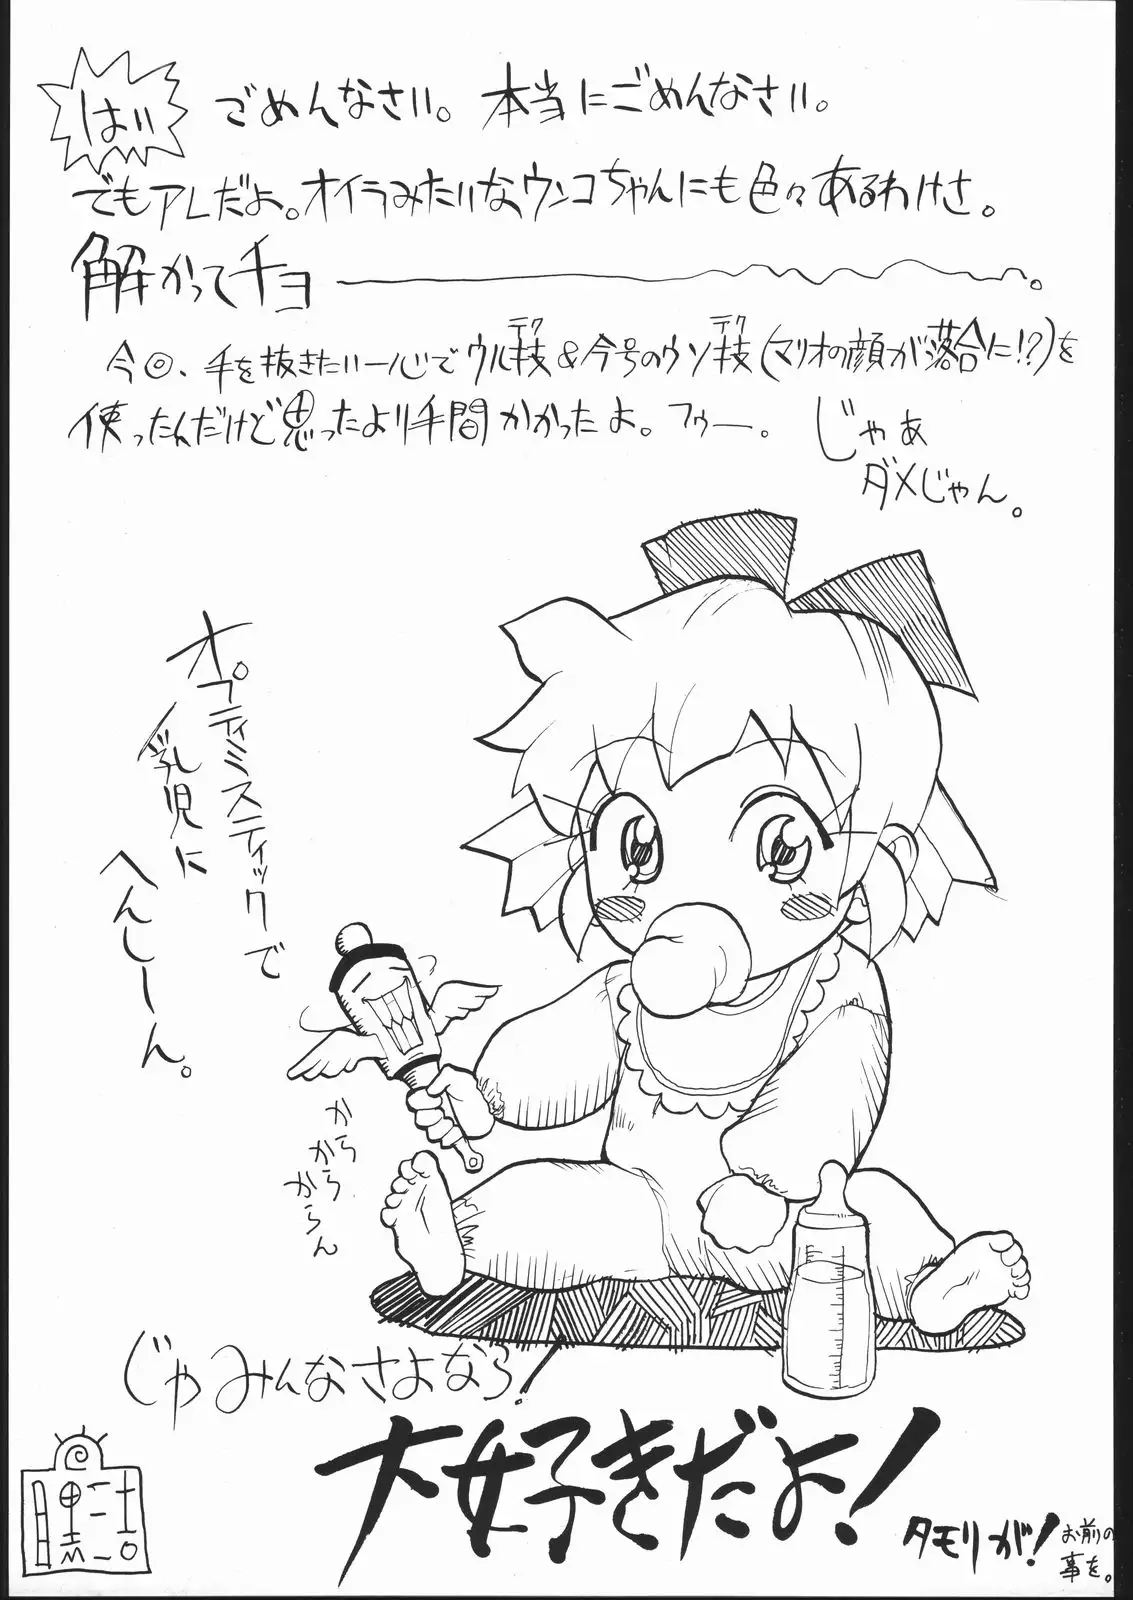 はい ごめんなさい。本当にごめんなさい。
でもアレだよ。オイラみたいなウンコちゃんにも色々あるわけさ。
解かってチョ――――。
今回、手を抜きたい一心でウル技&今号のウソ技(マリオの顔が落合に!?)を
テク テク
使ったんだけど思ったより手間かかったよ。フゥー。じゃあ
ダメじゃん。
オプティミスティックで
乳児に
へんしーん。
からら
かららん
じゃみんなさよなら!
大好きだよ!
タモリが!
お前の
事を。